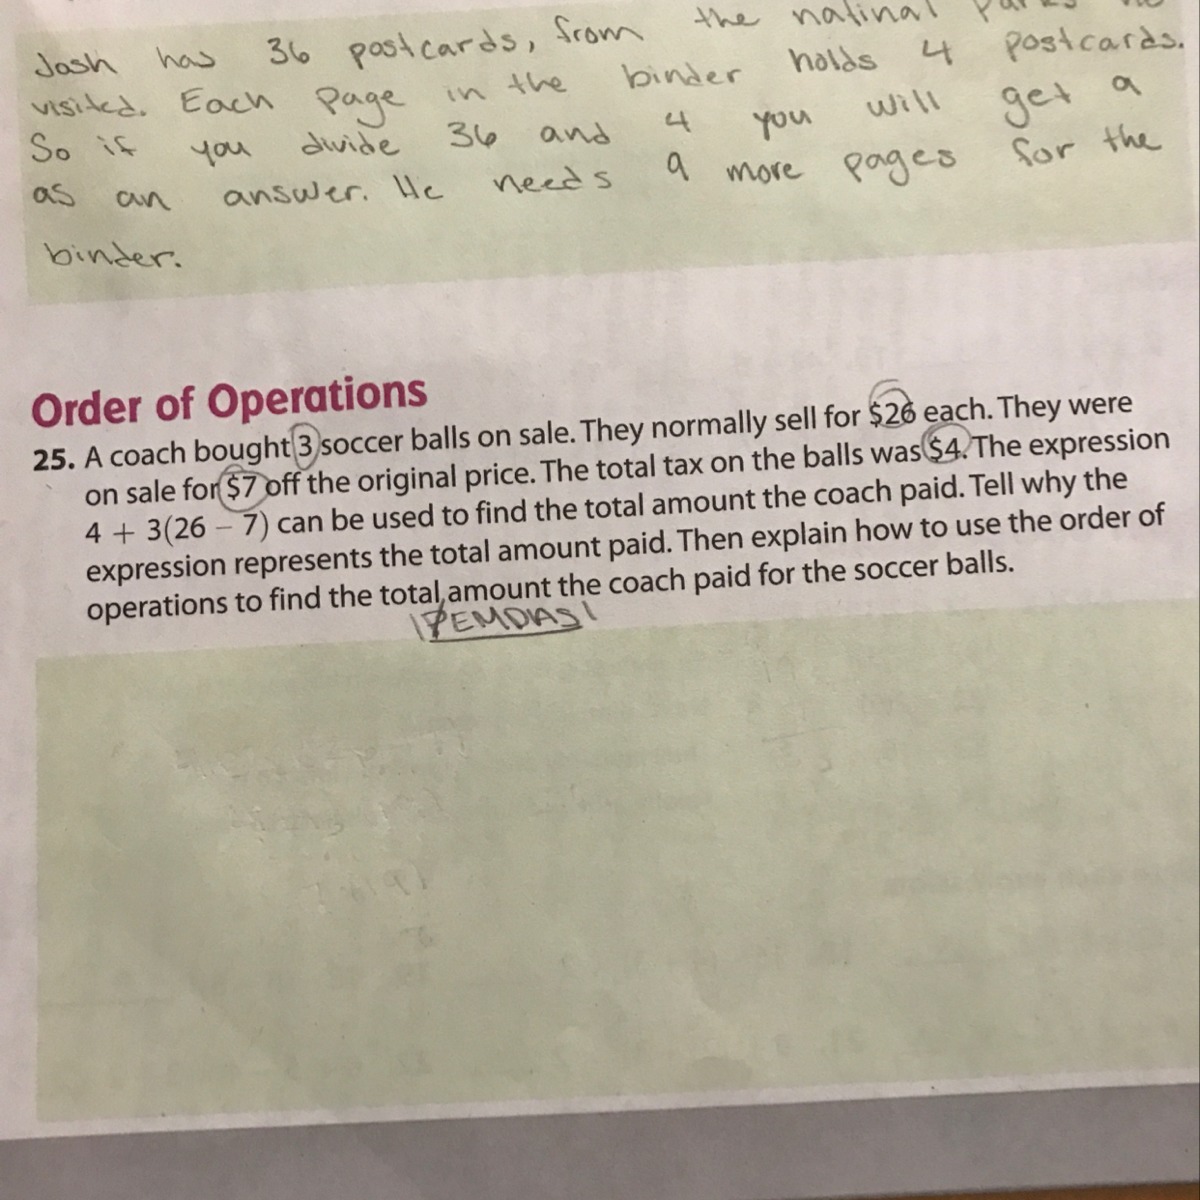 Josh has 36 postcards, from the natinal parks he
visited. Each page in the binder holds 4 postcards.
So if you divide 36 and 4 you will get a
as an answer. He needs 9 more pages for the
binder.
Order of Operations
25. A coach bought 3 soccer balls on sale. They normally sell for $26 each. They were
on sale for $7 off the original price. The total tax on the balls was $4. The expression
4 + 3(26 – 7) can be used to find the total amount the coach paid. Tell why the
expression represents the total amount paid. Then explain how to use the order of
operations to find the total amount the coach paid for the soccer balls.
PEMDAS